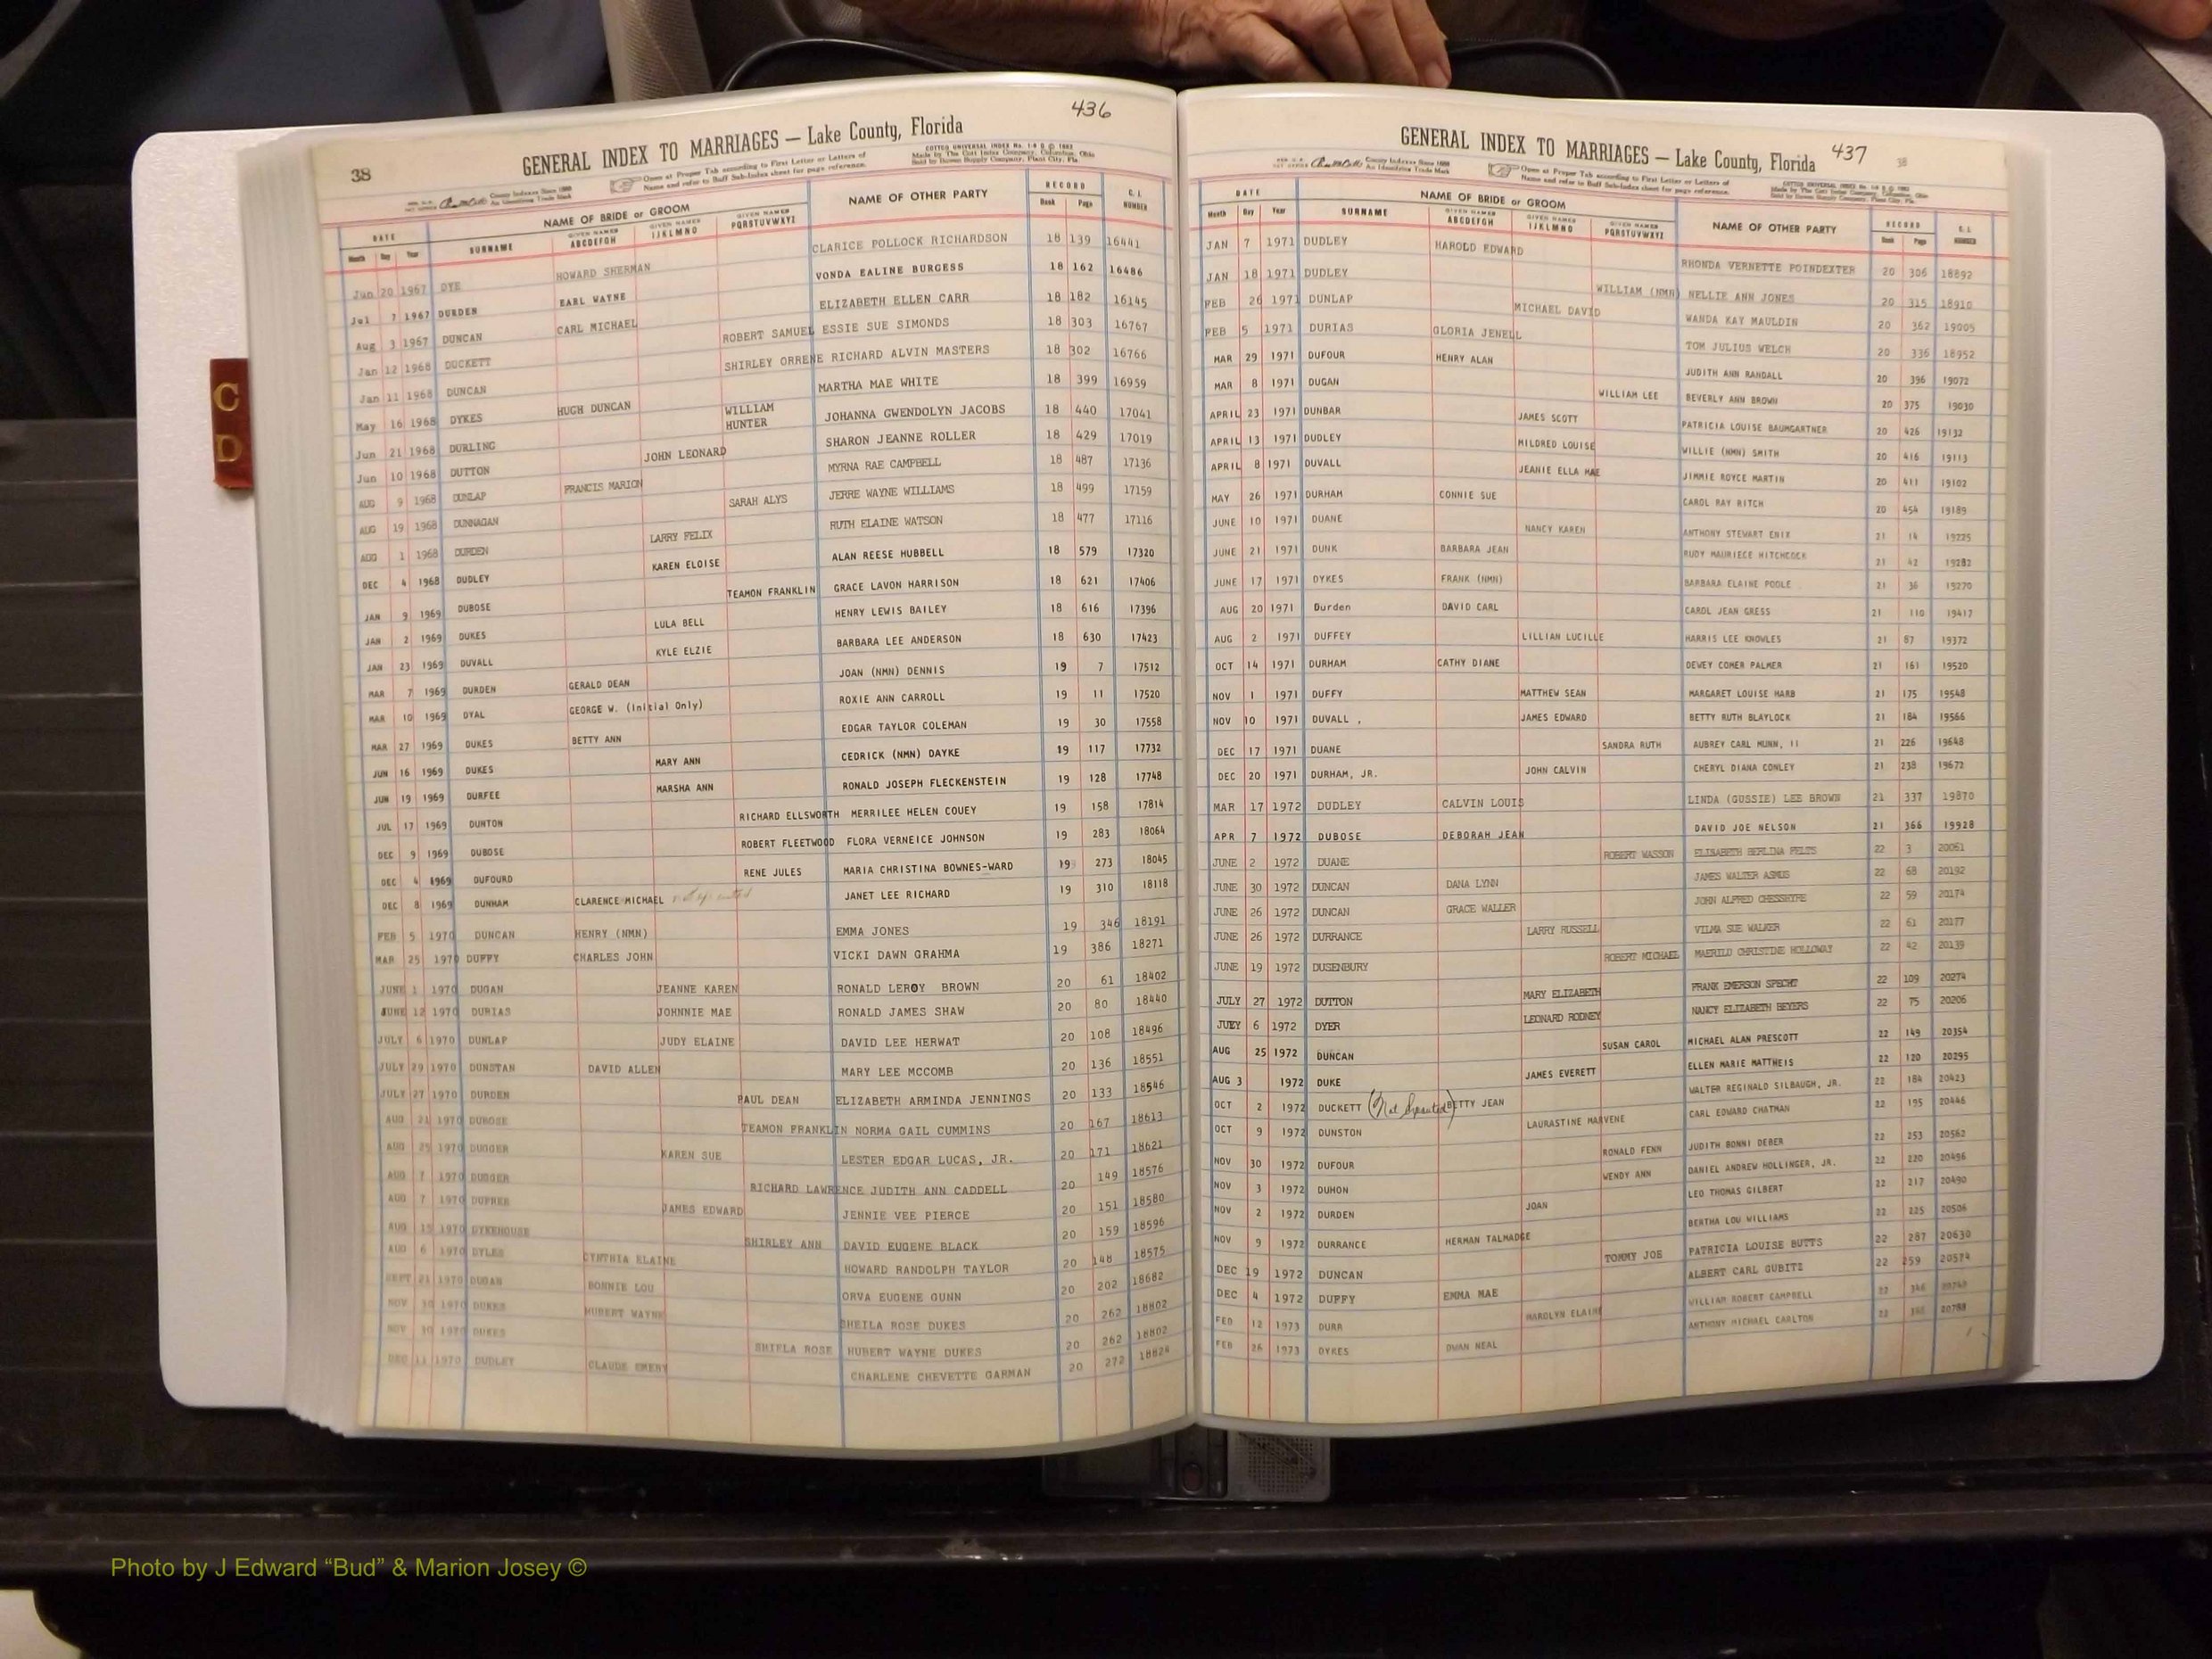 436
GENERAL INDEX TO MARRIAGES — Lake County, Florida
38
COTTON UNIVERSAL INDEX No. 1-8
Made by The Cott Index Company, Columbus, Ohio
Sold by Bowen Supply Company, Plant City, Fla.
County Indexes Since 1888
An Identifying Trade Mark
Open at Proper Tab according to First Letter or Letters of
Name and refer to Buff Sub-Index sheet for page reference.
DATE NAME OF BRIDE or GROOM NAME OF OTHER PARTY RECORD C. I. NUMBER
Month Day Year SURNAME GIVEN NAMES ABCDEFGH GIVEN NAMES IJKLMNO GIVEN NAMES PQRSTUVWXYZ Book Page
Jun 20 1967 DYE HOWARD SHERMAN CLARICE POLLOCK RICHARDSON 18 139 16441
Jul 7 1967 DURDEN EARL WAYNE VONDA EALINE BURGESS 18 162 16486
Aug 3 1967 DUNCAN CARL MICHAEL ELIZABETH ELLEN CARR 18 182 16145
Jan 12 1968 DUCKETT ROBERT SAMUEL ESSIE SUE SIMONDS 18 303 16767
Jan 11 1968 DUNCAN SHIRLEY ORRENE RICHARD ALVIN MASTERS 18 302 16766
May 16 1968 DYKES HUGH DUNCAN MARTHA MAE WHITE 18 399 16959
Jun 21 1968 DURLING WILLIAM HUNTER JOHANNA GWENDOLYN JACOBS 18 440 17041
Jun 10 1968 DUTTON JOHN LEONARD SHARON JEANNE ROLLER 18 429 17019
AUG 9 1968 DUNLAP FRANCIS MARION MYRNA RAE CAMPBELL 18 487 17136
AUG 19 1968 DUNNAGAN SARAH ALYS JERRE WAYNE WILLIAMS 18 499 17159
AUG 1 1968 DURDEN LARRY FELIX RUTH ELAINE WATSON 18 477 17116
DEC 4 1968 DUDLEY KAREN ELOISE ALAN REESE HUBBELL 18 579 17320
JAN 9 1969 DUBOSE TEAMON FRANKLIN GRACE LAVON HARRISON 18 621 17406
JAN 2 1969 DUKES LULA BELL HENRY LEWIS BAILEY 18 616 17396
JAN 23 1969 DUVALL KYLE ELZIE BARBARA LEE ANDERSON 18 630 17423
MAR 7 1969 DURDEN GERALD DEAN JOAN (NMN) DENNIS 19 7 17512
MAR 10 1969 DYAL GEORGE W. (Initial Only) ROXIE ANN CARROLL 19 11 17520
MAR 27 1969 DUKES BETTY ANN EDGAR TAYLOR COLEMAN 19 30 17558
JUN 16 1969 DUKES MARY ANN CEDRICK (NMN) DAYKE 19 117 17732
JUN 19 1969 DURFEE MARSHA ANN RONALD JOSEPH FLECKENSTEIN 19 128 17748
JUL 17 1969 DUNTON RICHARD ELLSWORTH MERRILEE HELEN COUEY 19 158 17814
DEC 9 1969 DUBOSE ROBERT FLEETWOOD FLORA VERNEICE JOHNSON 19 283 18064
DEC 4 1969 DUFOURD RENE JULES MARIA CHRISTINA BOWNES-WARD 19 273 18045
DEC 8 1969 DUNHAM CLARENCE MICHAEL JANET LEE RICHARD 19 310 18118
FEB 5 1970 DUNCAN HENRY (NMN) EMMA JONES 19 346 18191
MAR 25 1970 DUFFY CHARLES JOHN VICKI DAWN GRAHMA 19 386 18271
JUNE 1 1970 DUGAN JEANNE KAREN RONALD LEROY BROWN 20 61 18402
JUNE 12 1970 DURIAS JOHNNIE MAE RONALD JAMES SHAW 20 80 18440
JULY 6 1970 DUNLAP JUDY ELAINE DAVID LEE HERWAT 20 108 18496
JULY 29 1970 DUNSTAN DAVID ALLEN MARY LEE MCCOMB 20 136 18551
JULY 27 1970 DURDEN PAUL DEAN ELIZABETH ARMINDA JENNINGS 20 133 18546
AUG 21 1970 DUBOSE TEAMON FRANKLIN NORMA GAIL CUMMINS 20 167 18613
AUG 25 1970 DUGGER KAREN SUE LESTER EDGAR LUCAS, JR. 20 171 18621
AUG 7 1970 DUGGER RICHARD LAWRENCE JUDITH ANN CADDELL 20 149 18576
AUG 7 1970 DUPREE JAMES EDWARD JENNIE VEE PIERCE 20 151 18580
AUG 15 1970 DYKEHOUSE SHIRLEY ANN DAVID EUGENE BLACK 20 159 18596
AUG 6 1970 DYLES CYNTHIA ELAINE HOWARD RANDOLPH TAYLOR 20 148 18575
SEPT 21 1970 DUGAN BONNIE LOU ORVA EUGENE GUNN 20 202 18682
NOV 30 1970 DUKES HUBERT WAYNE SHEILA ROSE DUKES 20 262 18802
NOV 30 1970 DUKES SHIELA ROSE HUBERT WAYNE DUKES 20 262 18802
DEC 11 1970 DUDLEY CLAUDE EMERY CHARLENE CHEVETTE GARMAN 20 272 18824
437
GENERAL INDEX TO MARRIAGES — Lake County, Florida
38
County Indexes Since 1888
An Identifying Trade Mark
Open at Proper Tab according to First Letter or Letters of
Name and refer to Buff Sub-Index sheet for page reference.
COTTON UNIVERSAL INDEX No. 1-8
Made by The Cott Index Company, Columbus, Ohio
Sold by Bowen Supply Company, Plant City, Fla.
DATE NAME OF BRIDE or GROOM NAME OF OTHER PARTY RECORD C. I. NUMBER
Month Day Year SURNAME GIVEN NAMES ABCDEFGH GIVEN NAMES IJKLMNO GIVEN NAMES PQRSTUVWXYZ Book Page
JAN 7 1971 DUDLEY HAROLD EDWARD RHONDA VERNETTE POINDEXTER 20 306 18892
JAN 18 1971 DUDLEY WILLIAM (NMN) NELLIE ANN JONES 20 315 18910
FEB 26 1971 DUNLAP MICHAEL DAVID WANDA KAY MAULDIN 20 362 19005
FEB 5 1971 DURIAS GLORIA JENELL TOM JULIUS WELCH 20 336 18952
MAR 29 1971 DUFOUR HENRY ALAN JUDITH ANN RANDALL 20 396 19072
MAR 8 1971 DUGAN WILLIAM LEE BEVERLY ANN BROWN 20 375 19030
APRIL 23 1971 DUNBAR JAMES SCOTT PATRICIA LOUISE BAUMGARTNER 20 426 19132
APRIL 13 1971 DUDLEY MILDRED LOUISE WILLIE (NMN) SMITH 20 416 19113
APRIL 8 1971 DUVALL JEANIE ELLA MAE JIMMIE ROYCE MARTIN 20 411 19102
MAY 26 1971 DURHAM CONNIE SUE CAROL RAY RITCH 20 454 19189
JUNE 10 1971 DUANE NANCY KAREN ANTHONY STEWART ENIX 21 14 19225
JUNE 21 1971 DUNK BARBARA JEAN RUDY MAURIECE HITCHCOCK 21 42 19282
JUNE 17 1971 DYKES FRANK (NMN) BARBARA ELAINE POOLE 21 36 19270
AUG 20 1971 Durden DAVID CARL CAROL JEAN GRESS 21 110 19417
AUG 2 1971 DUFFEY LILLIAN LUCILLE HARRIS LEE KNOWLES 21 87 19372
OCT 14 1971 DURHAM CATHY DIANE DEWEY COMER PALMER 21 161 19520
NOV 1 1971 DUFFY MATTHEW SEAN MARGARET LOUISE HARB 21 175 19548
NOV 10 1971 DUVALL , JAMES EDWARD BETTY RUTH BLAYLOCK 21 184 19566
DEC 17 1971 DUANE SANDRA RUTH AUBREY CARL MUNN, II 21 226 19648
DEC 20 1971 DURHAM, JR. JOHN CALVIN CHERYL DIANA CONLEY 21 238 19672
MAR 17 1972 DUDLEY CALVIN LOUIS LINDA (GUSSIE) LEE BROWN 21 337 19870
APR 7 1972 DUBOSE DEBORAH JEAN DAVID JOE NELSON 21 366 19928
JUNE 2 1972 DUANE ROBERT WASSON ELISABETH BERLINA FELTS 22 3 20061
JUNE 30 1972 DUNCAN DANA LYNN JAMES WALTER ASMUS 22 68 20192
JUNE 26 1972 DUNCAN GRACE WALLER JOHN ALFRED CHESSHYRE 22 59 20174
JUNE 26 1972 DURRANCE LARRY RUSSELL VILMA SUE WALKER 22 61 20177
JUNE 19 1972 DUSENBURY ROBERT MICHAEL MAERILO CHRISTINE HOLLOWAY 22 42 20139
JULY 27 1972 DUTTON MARY ELIZABETH FRANK EMERSON SPECHT 22 109 20274
JULY 6 1972 DYER LEONARD RODNEY NANCY ELIZABETH BEYERS 22 75 20206
AUG 25 1972 DUNCAN SUSAN CAROL MICHAEL ALAN PRESCOTT 22 149 20354
AUG 3 1972 DUKE JAMES EVERETT ELLEN MARIE MATTHEIS 22 120 20295
OCT 2 1972 DUCKETT (Not BETTY JEAN WALTER REGINALD SILBAUGH, JR. 22 184 20423
OCT 9 1972 DUNSTON LAURASTINE MARVENE CARL EDWARD CHATMAN 22 195 20446
NOV 30 1972 DUFOUR RONALD FENN JUDITH BONNI DEBER 22 253 20562
NOV 3 1972 DUHON WENDY ANN DANIEL ANDREW HOLLINGER, JR. 22 220 20496
NOV 2 1972 DURDEN JOAN LEO THOMAS GILBERT 22 217 20490
NOV 9 1972 DURRANCE HERMAN TALMADGE BERTHA LOU WILLIAMS 22 225 20506
DEC 19 1972 DUNCAN TOMMY JOE PATRICIA LOUISE BUTTS 22 287 20630
DEC 4 1972 DUFFY EMMA MAE ALBERT CARL GUBITZ 22 259 20574
FEB 12 1973 DURR MAROLYN ELAINE WILLIAM ROBERT CAMPBELL 22 346
FEB 26 1973 DYKES DWAN NEAL ANTHONY MICHAEL CARLTON 22 20788
C
D
Photo by J Edward “Bud” & Marion Josey ©